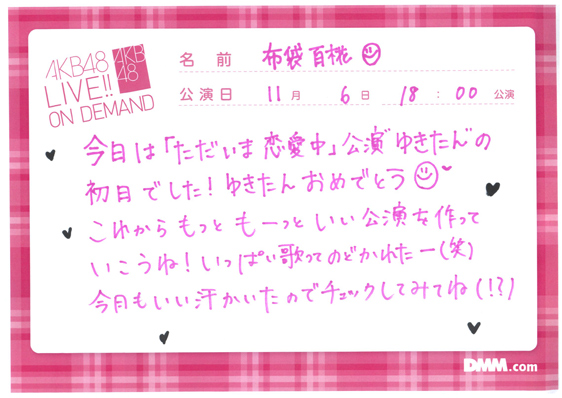 AKB48
LIVE!!
ON DEMAND
AKB
48
名前 布袋百椛
公演日 11月 6日 18:00 公演
今日は「ただいま恋愛中」公演ゆきたんの
初日でした!ゆきたんおめでとう
これからもっともーっといい公演を作って
いこうね!いっぱい歌ってのどかれたー(笑)
今月もいい汗かいたのでチェックしてみてね(!?)
DMM.com